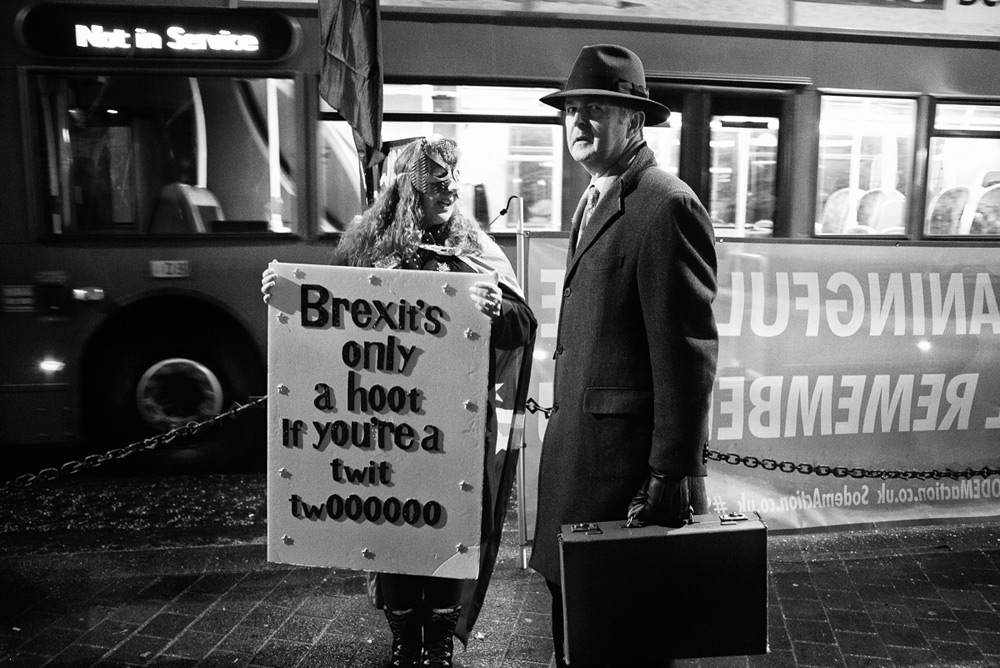 Not in Service
Brexit's
only
a hoot
If you're a
twit
twOOOOOO
ANINGFUL
REMEMBE
ODEMaction.co.uk SodemAction.co.uk #